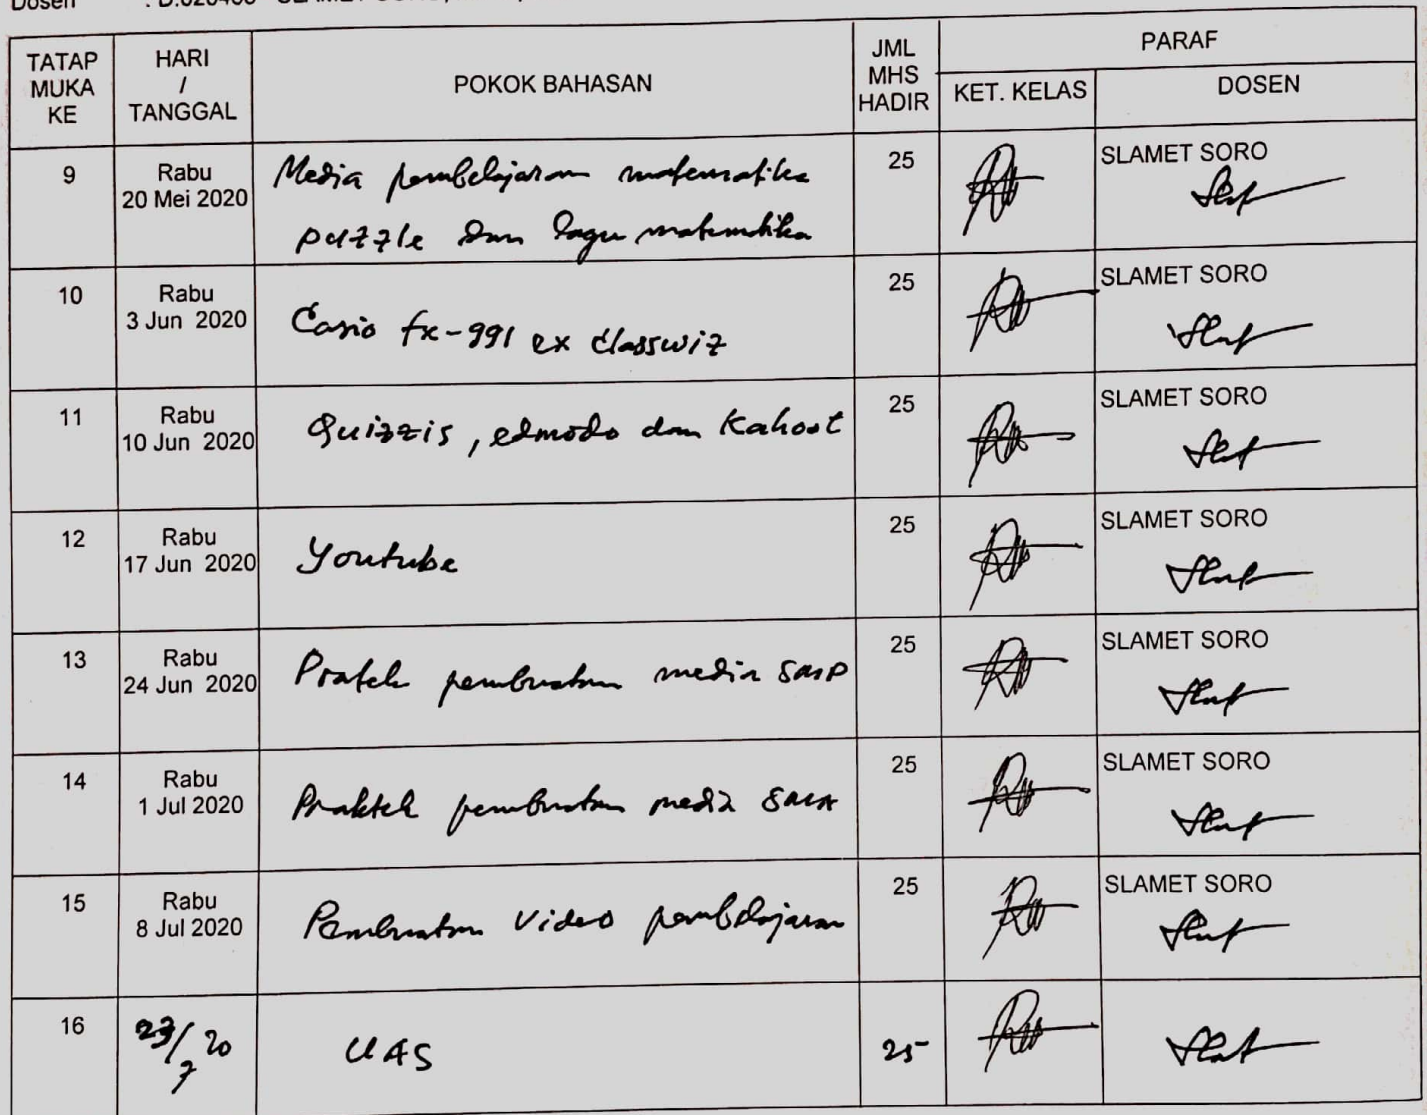 Dosen
TATAP MUKA KE
HARI / TANGGAL
POKOK BAHASAN
JML MHS HADIR
PARAF
KET. KELAS
DOSEN
9
Rabu
20 Mei 2020
Media pembelajaran matematika
puzzle dan lagu matematika
25
SLAMET SORO
10
Rabu
3 Jun 2020
Casio fx-991 ex classwiz
25
SLAMET SORO
11
Rabu
10 Jun 2020
Quizzis, edmodo dan Kahoot
25
SLAMET SORO
12
Rabu
17 Jun 2020
Youtube
25
SLAMET SORO
13
Rabu
24 Jun 2020
Pratek pembuatan media SMP
25
SLAMET SORO
14
Rabu
1 Jul 2020
Praktek pembuatan media SMA
25
SLAMET SORO
15
Rabu
8 Jul 2020
Pembuatan video pembelajaran
25
SLAMET SORO
16
23/7 20
UAS
25